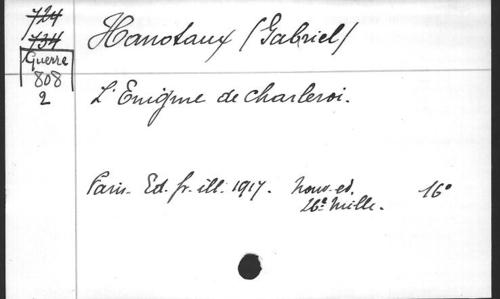 724
734
Guerre
808
2
Hanotaux (Gabriel)
L'Enigme de Charleroi.
Paris. Ed. fr. ill. 1917. Nouv. ed. 16°
26e mille.